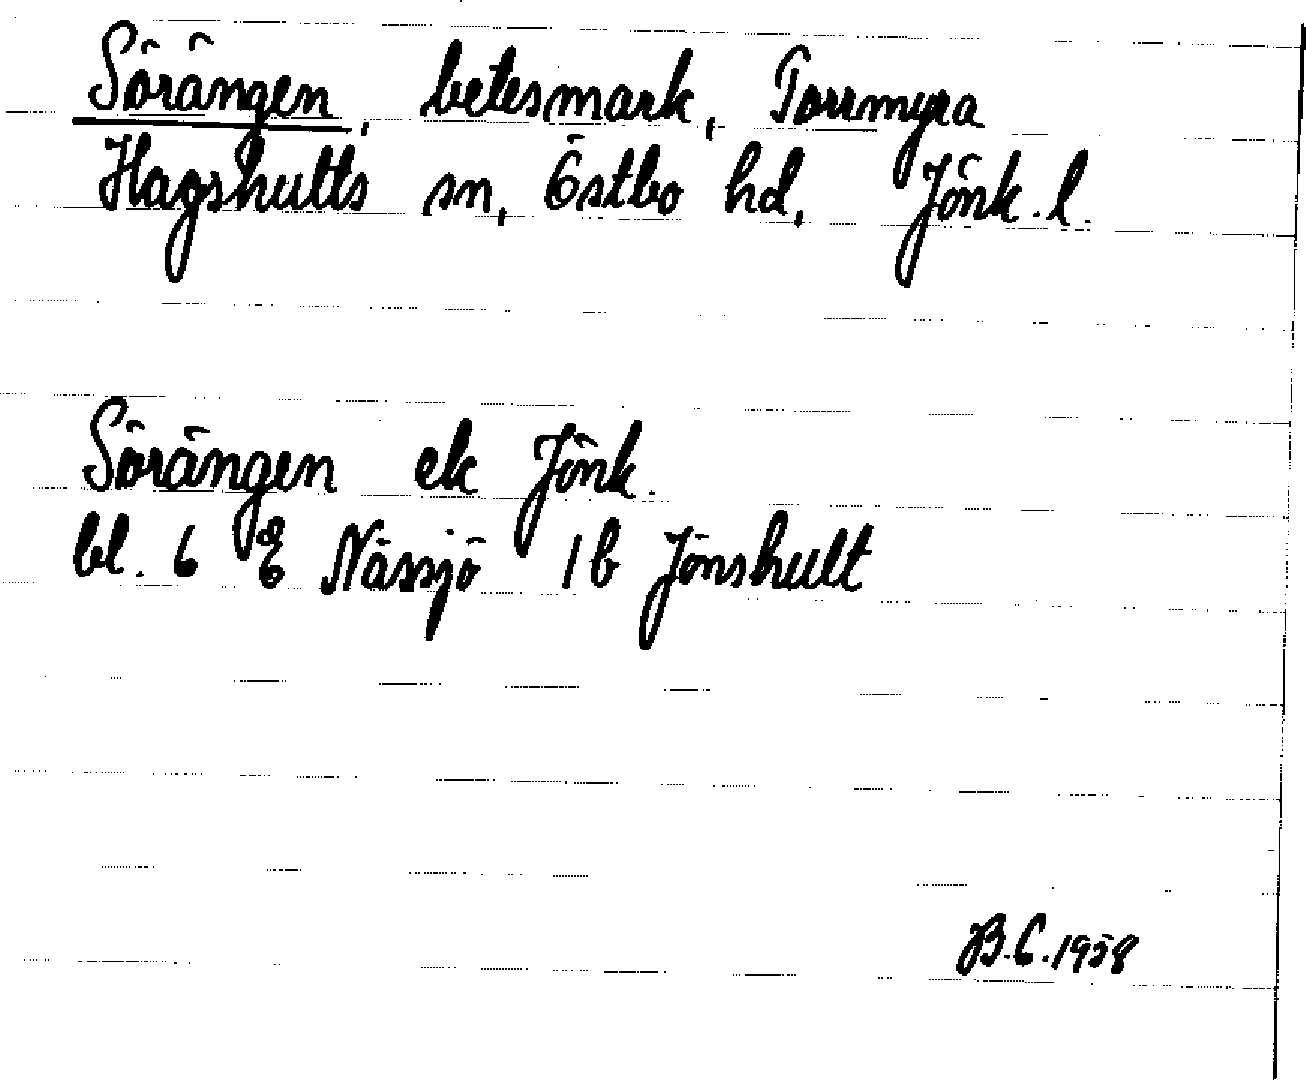 Sörängen, betesmark, Torrmyra
Hagshults sn, Östbo hd, Jönk. l.
Sörängen ek Jönk.
bl. 6 E Nässjö 1 b Jönshult
B.C. 1958